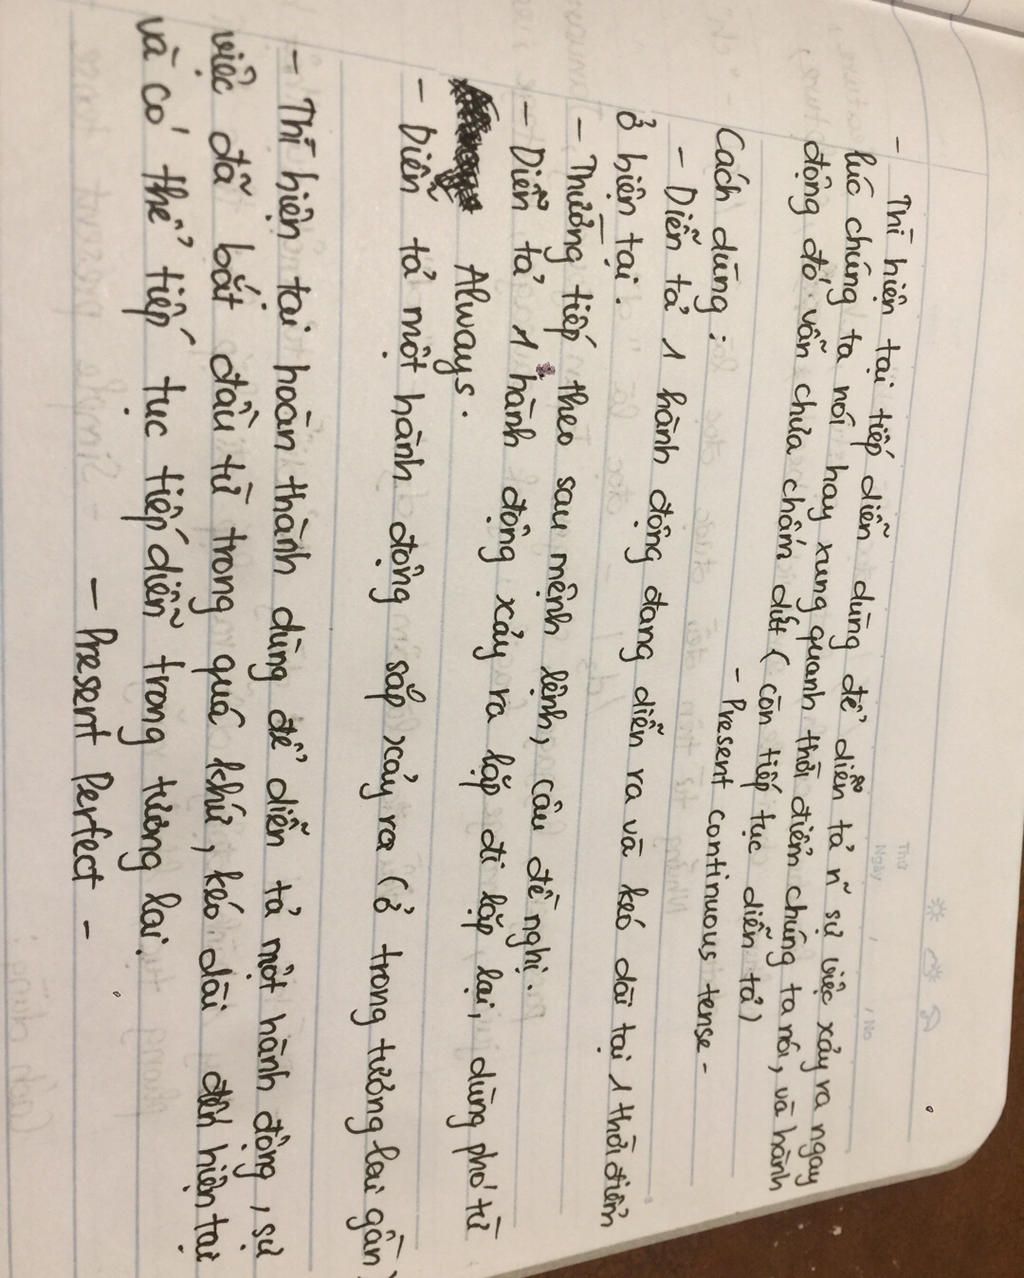 - Thì hiện tại tiếp diễn dùng để diễn tả n~ sự việc xảy ra ngay
lúc chúng ta nói hay xung quanh thời điểm chúng ta nói, và hành
động đó vẫn chưa chấm dứt (còn tiếp tục diễn tả)
- Present continuous tense -
Cách dùng:
- Diễn tả 1 hành động đang diễn ra và kéo dài tại 1 thời điểm
ở hiện tại.
- Thường tiếp theo sau mệnh lệnh, câu đề nghị.
- Diễn tả 1 hành động xảy ra lặp đi lặp lại, dùng phó từ
Always.
- Diễn tả một hành động sắp xảy ra (ở trong tương lai gần)
- Thì hiện tại hoàn thành dùng để diễn tả một hành động, sự
việc đã bắt đầu từ trong quá khứ, kéo dài đến hiện tại
và có thể tiếp tục tiếp diễn trong tương lai.
- Present Perfect -
Thứ
Ngày
No